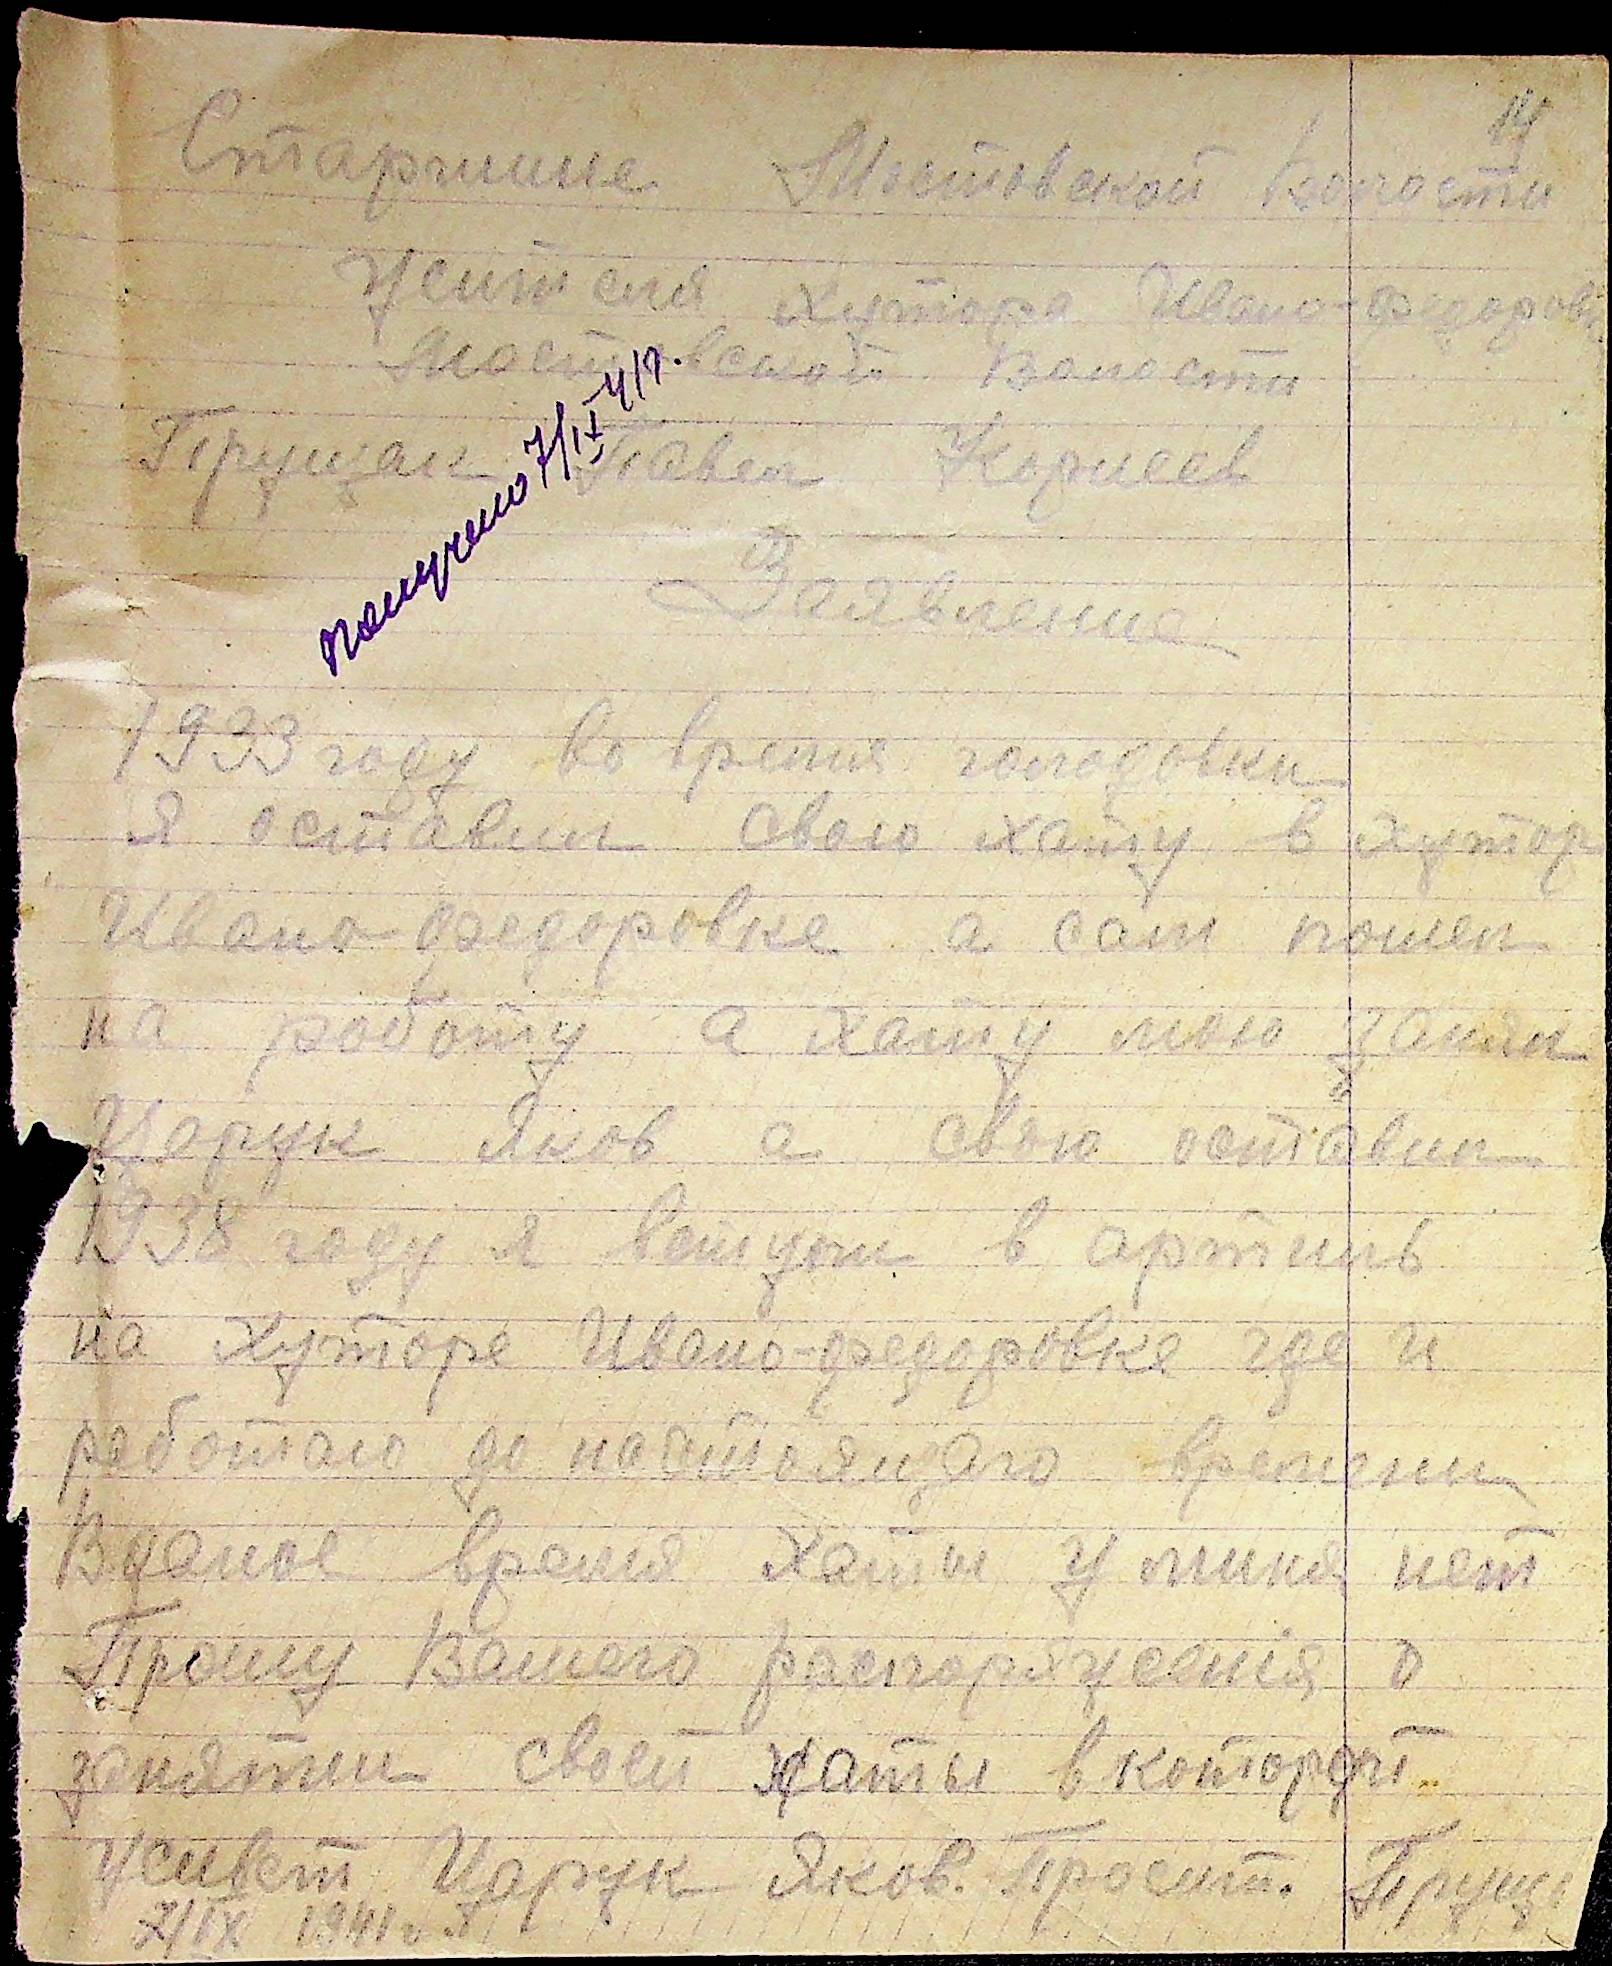 14
Старшине Мостовской Волости
Жителя хутора Ивано-федоровк
Мостовской Волости
Прущак Павел Корнеев
получено 7/IX 41г.
Заявление
1933 году во время голодовки
я оставил свою хату в хутор
Ивано федоровке а сам пошел
на роботу а хату мою занял
Царук Яков а свою оставил
1938 году я вступил в артиль
на хуторе Ивано-федоровке где и
работаю до настоящаго времени
Вданое время хаты у миня нет
Прошу Вашего распоряжения о
занятии своей хаты вкоторой
живет Царук Яков. Просит. Прущ
7/IX 1941 г.